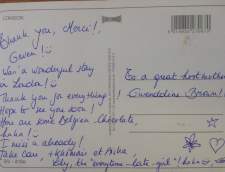 LONDON
Thank you, Merci!,
Gwen!
Was a wonderful stay
in London!
Thank you for everything!
Hope to see you soon!
Here are some Belgian chocolate,
haha!
I miss u already!
Take care,
Lily, the "everytime-late-girl"! haha
To a great host mother
Gwenddine Brown!